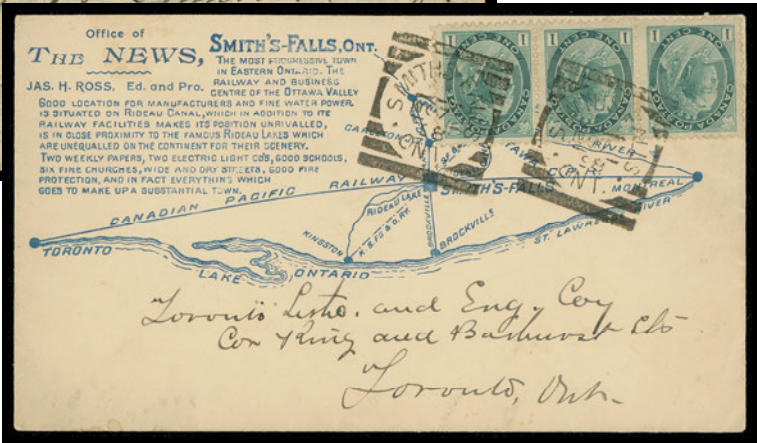 Office of
THE NEWS,
JAS. H. ROSS, Ed. and Pro.
SMITH'S-FALLS, ONT.
THE MOST PROGRESSIVE TOWN
IN EASTERN ONTARIO. THE
RAILWAY AND BUSINESS
CENTRE OF THE OTTAWA VALLEY
GOOD LOCATION FOR MANUFACTURERS AND FINE WATER POWER.
IS SITUATED ON RIDEAU CANAL, WHICH IN ADDITION TO ITS
RAILWAY FACILITIES MAKES ITS POSITION UNRIVALLED,
IS IN CLOSE PROXIMITY TO THE FAMOUS RIDEAU LAKES WHICH
ARE UNEQUALLED ON THE CONTINENT FOR THEIR SCENERY.
TWO WEEKLY PAPERS, TWO ELECTRIC LIGHT CO'S, GOOD SCHOOLS,
SIX FINE CHURCHES, WIDE AND DRY STREETS, GOOD FIRE
PROTECTION, AND IN FACT EVERYTHING WHICH
GOES TO MAKE UP A SUBSTANTIAL TOWN.
1 ONE CENT 1
1 ONE CENT 1
1 ONE CENT 1
CANADA POSTAGE
SMITH'S
ONT.
ONT.
RIVER
CANADIAN PACIFIC RAILWAY
SMITH'S-FALLS
MONTREAL
RIDEAU LAKE
BROCKVILLE
BROCKVILLE
KINGSTON
ST. LAWRENCE RIVER
TORONTO
LAKE ONTARIO
Toronto Litho. and Eng. Coy
Cor King and Bathurst Sts
Toronto, Ont.